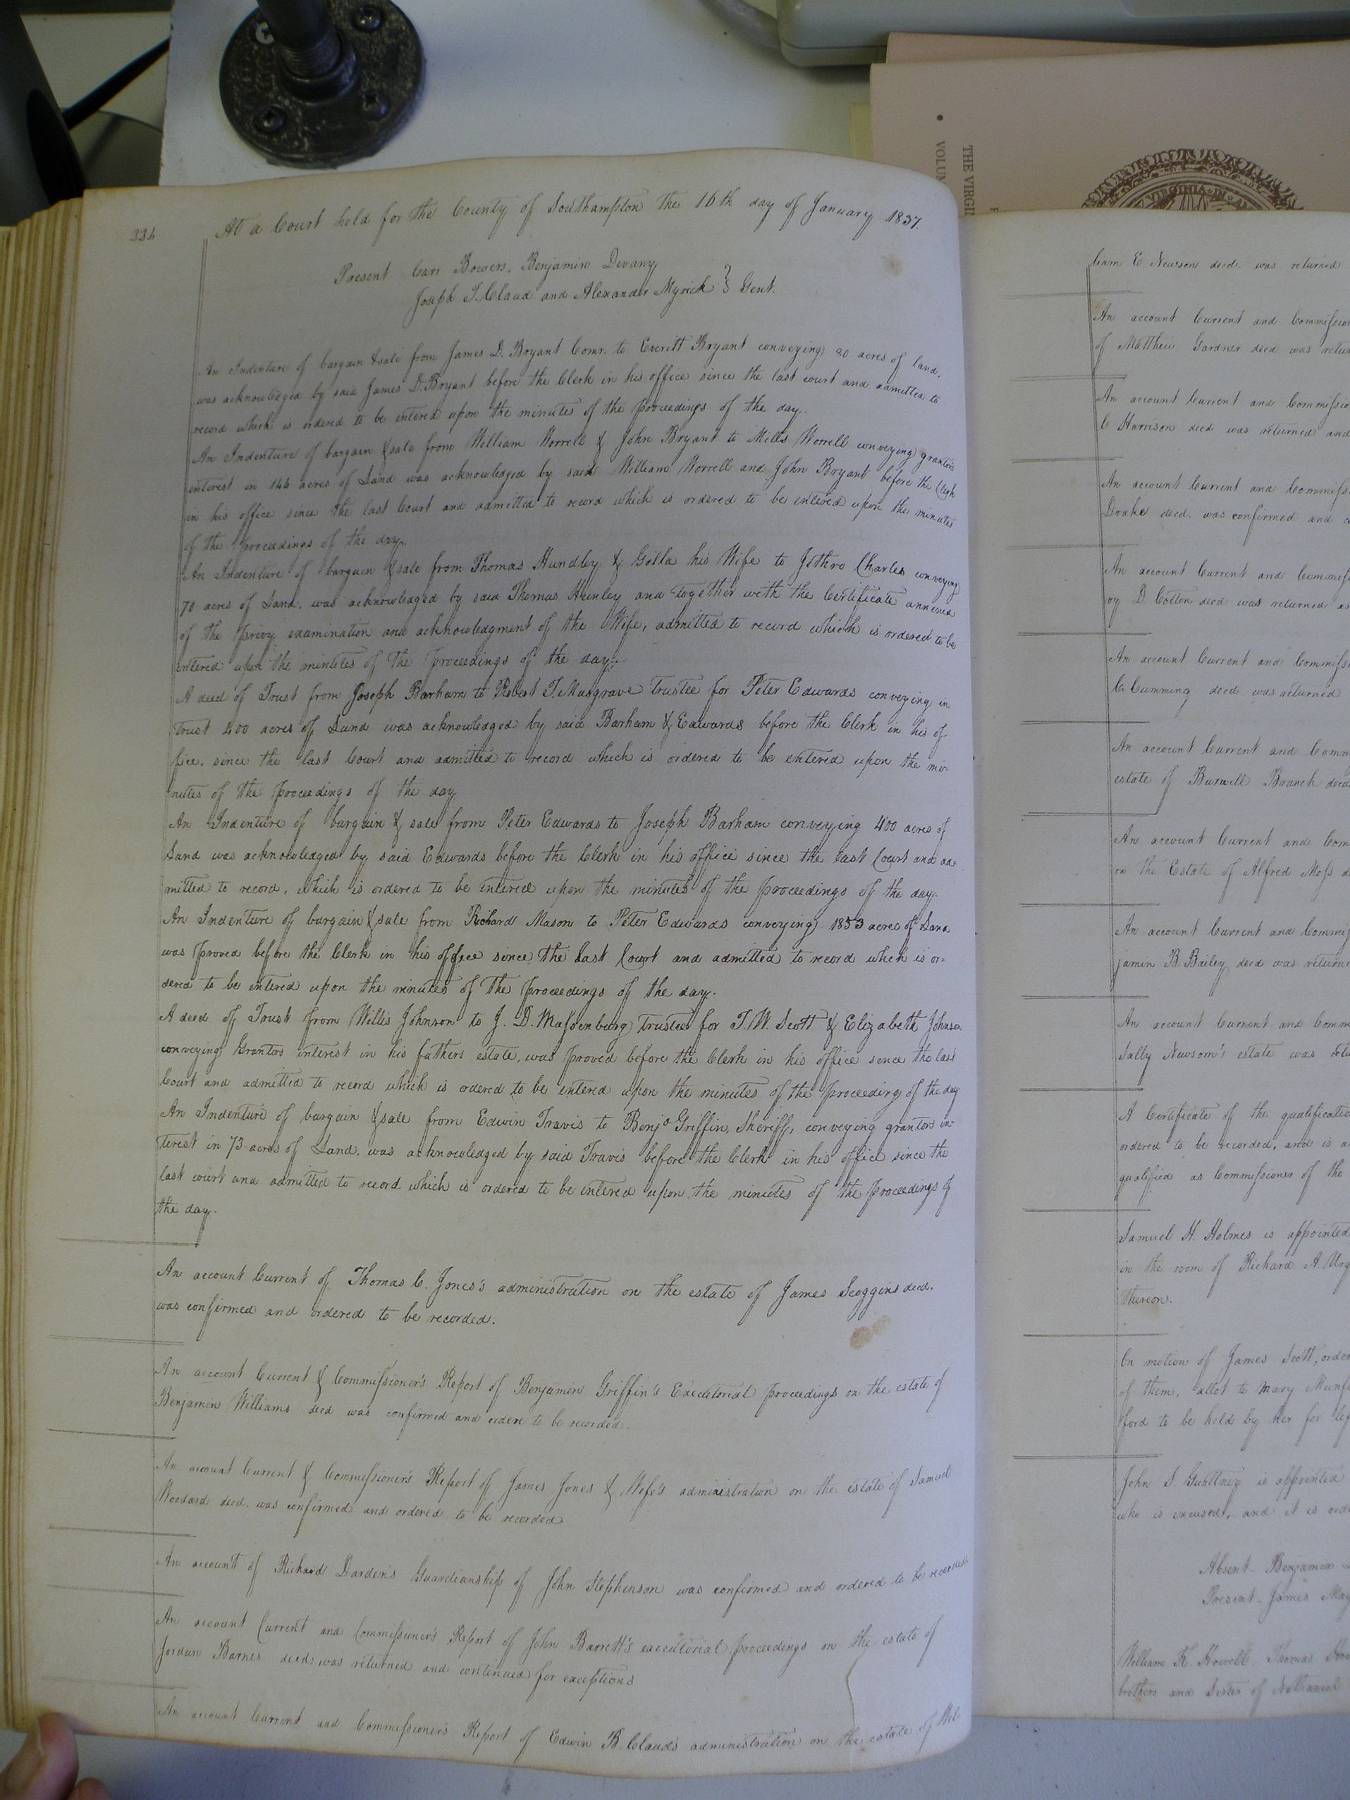 334
At a Court held for the County of Southampton the 16th day of January 1837.
Present Carr Bowers, Benjamin Devany
Joseph T. Claud and Alexander Myrick } Gent.
An Indenture of bargain & sale from James D. Bryant Comr. to Everitt Bryant conveying 90 acres of land,
was acknowledged by said James D. Bryant before the Clerk in his office since the last court and admitted to
record which is ordered to be entered upon the minutes of the proceedings of the day.
An Indenture of bargain & sale from William Worrell & John Bryant to Mills Worrell conveying grantors
interest in 144 acres of Land was acknowledged by said William Worrell and John Bryant before the Clerk
in his office since the last Court and admitted to record which is ordered to be entered upon the minutes
of the proceedings of the day.
An Indenture of bargain & sale from Thomas Hundley & his Wife to Jethro Charles conveying
70 acres of Land. was acknowledged by said Thomas Hunley and together with the Certificate annexed
of the privy examination and acknowledgment of the Wife, admitted to record which is ordered to be
entered upon the minutes of the proceedings of the day.
A deed of Trust from Joseph Barham to Robert T. Musgrave trustee for Peter Edwards conveying in
trust 400 acres of Land was acknowledged by said Barham & Edwards before the Clerk in his of
fice. since the last Court and admitted to record which is ordered to be entered upon the mi-
nutes of the proceedings of the day
An Indenture of bargain & sale from Peter Edwards to Joseph Barham conveying 400 acres of
Land was acknowledged by said Edwards before the Clerk in his office since the last Court and ad-
mitted to record, which is ordered to be entered upon the minutes of the proceedings of the day.
An Indenture of bargain & sale from Richard Mason to Peter Edwards conveying 1853 acres of Land
was proved before the Clerk in his office since the last Court and admitted to record which is or-
dered to be entered upon the minutes of the proceedings of the day.
A deed of Trust from Willis Johnson to J. D. Massenburg trustee for T. W. Scott & Elizabeth Johnson
conveying Grantors interest in his fathers estate, was proved before the Clerk in his office since the last
Court and admitted to record which is ordered to be entered upon the minutes of the proceeding of the day
An Indenture of bargain & sale from Edwin Travis to Benja Griffin, Sheriff, conveying grantors in-
terest in 73 acres of Land. was acknowledged by said Travis before the Clerk in his office since the
last court and admitted to record which is ordered to be entered upon the minutes of the proceedings of
the day.
An account Current of Thomas C. Jones's administration on the estate of James Scoggins decd.
was confirmed and ordered to be recorded.
An account Current & Commissioner's Report of Benjamin Griffin's Executorial proceedings on the estate of
Benjamin Williams decd was confirmed and orderd to be recorded.
An account Current & Commissioner's Report of James Jones & Wife's administration on the estate of Samuel
Woodard decd. was confirmed and ordered to be recorded
An account of Richard Darden's Guardianship of John Stephenson was confirmed and ordered to be recorded
An account Current and Commissioner's Report of John Barrett's executorial proceedings on the estate of
Jordan Barnes decd. was returned and continued for exceptions
An account Current and Commissioner's Report of Edwin B. Claud's administration on the estate of Wil-
THE VIRGI
VOLU
VIRGINIA
liam E. Newsom decd. was returned
An account Current and Commissio
of Matthew Gardner decd was retur
An account Current and Commissio
C Harrison decd was returned and
An account Current and Commiss
Drake decd. was confirmed and o
An account Current and Commis
D Cotton decd was returned a
An account Current and Commiss
Cumming decd was returned
An account Current and Comm
estate of Burwell Branch decd
An account Current and Com
on the Estate of Alfred Moss d
An account Current and Commis
jamin B. Bailey decd was returne
An account Current and Comm
Sally Newsom's estate was
A Certificate of the qualificatio
ordered to be recorded, and is a
qualified as Commissioner of the
Samuel H. Holmes is appointed
in the room of Richard A.
thereon.
On motion of James Scott, orde
of them, allot to Mary
ford to be held by her for
John S. is appointed
who is excused, and it is ord
Absent Benjamin
Present James
William H. Howell, Thomas
brothers and Sister of Nathaniel